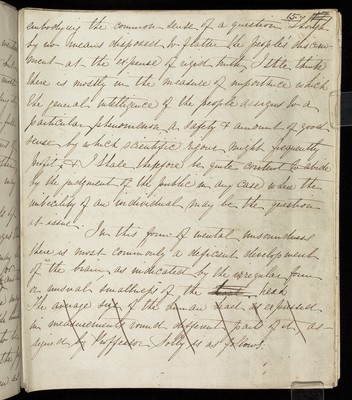 157
embodying the common sense of a question. Though
by no means disposed to flatter the people's discern
ment at the expense of rigid truth, I still think
there is mostly in the measure of importance which
the general intelligence of the people assigns to a
particular phenomenon a safety & amount of good
sense by which scientific rigour might frequently
profit, & I shall therefore be quite content to abide
by the judgment of the public in any case where the
imbecility of an individual may be the question
at issue.
In this form of mental unsoundness
there is most commonly a deficient development
of the brain, as indicated by the irregular form
or unusual smallness of the head
The average size of the human head as expressed
in measurements round different parts of it, as
signed by Professor Jolly is as follows.